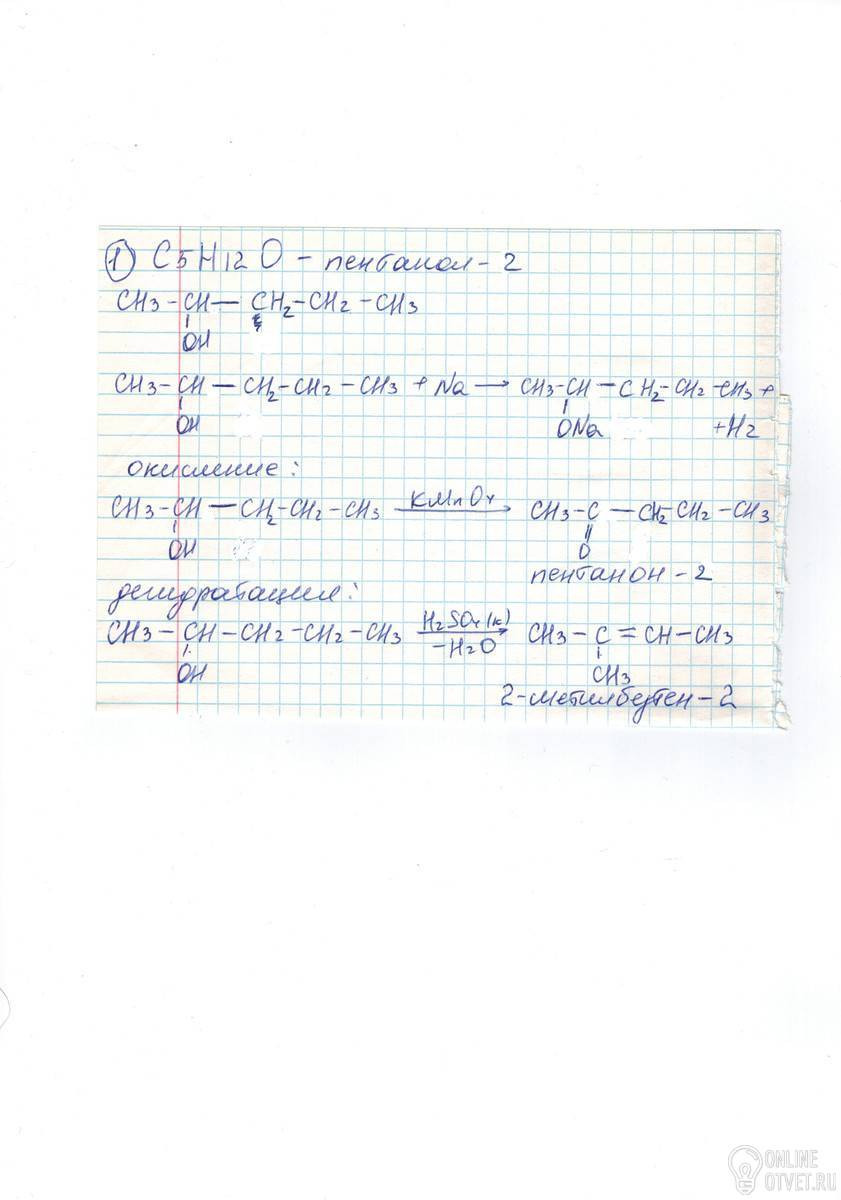 ① C5H12O – пентанол – 2
CH3 – CH — CH2 – CH2 – CH3
OH
CH3 – CH — CH2 – CH2 – CH3 + Na ⟶ CH3 – CH — CH2 – CH2 – CH3 +
OH ONa + H2
окисление:
CH3 – CH — CH2 – CH2 – CH3 KMnO4 ⟶ CH3 – C — CH2 – CH2 – CH3
OH O
пентанон – 2
дегидратация:
CH3 – CH – CH2 – CH2 – CH3 H2SO4(к) ⟶ – H2O CH3 – C = CH – CH3
OH CH3
2-метилбутен – 2
ONLINE
OTVET.RU